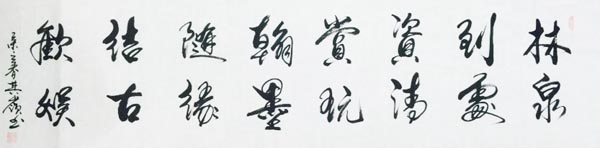 林泉
到處
資清
賞玩
翰墨
隨緣
結古
歡娛